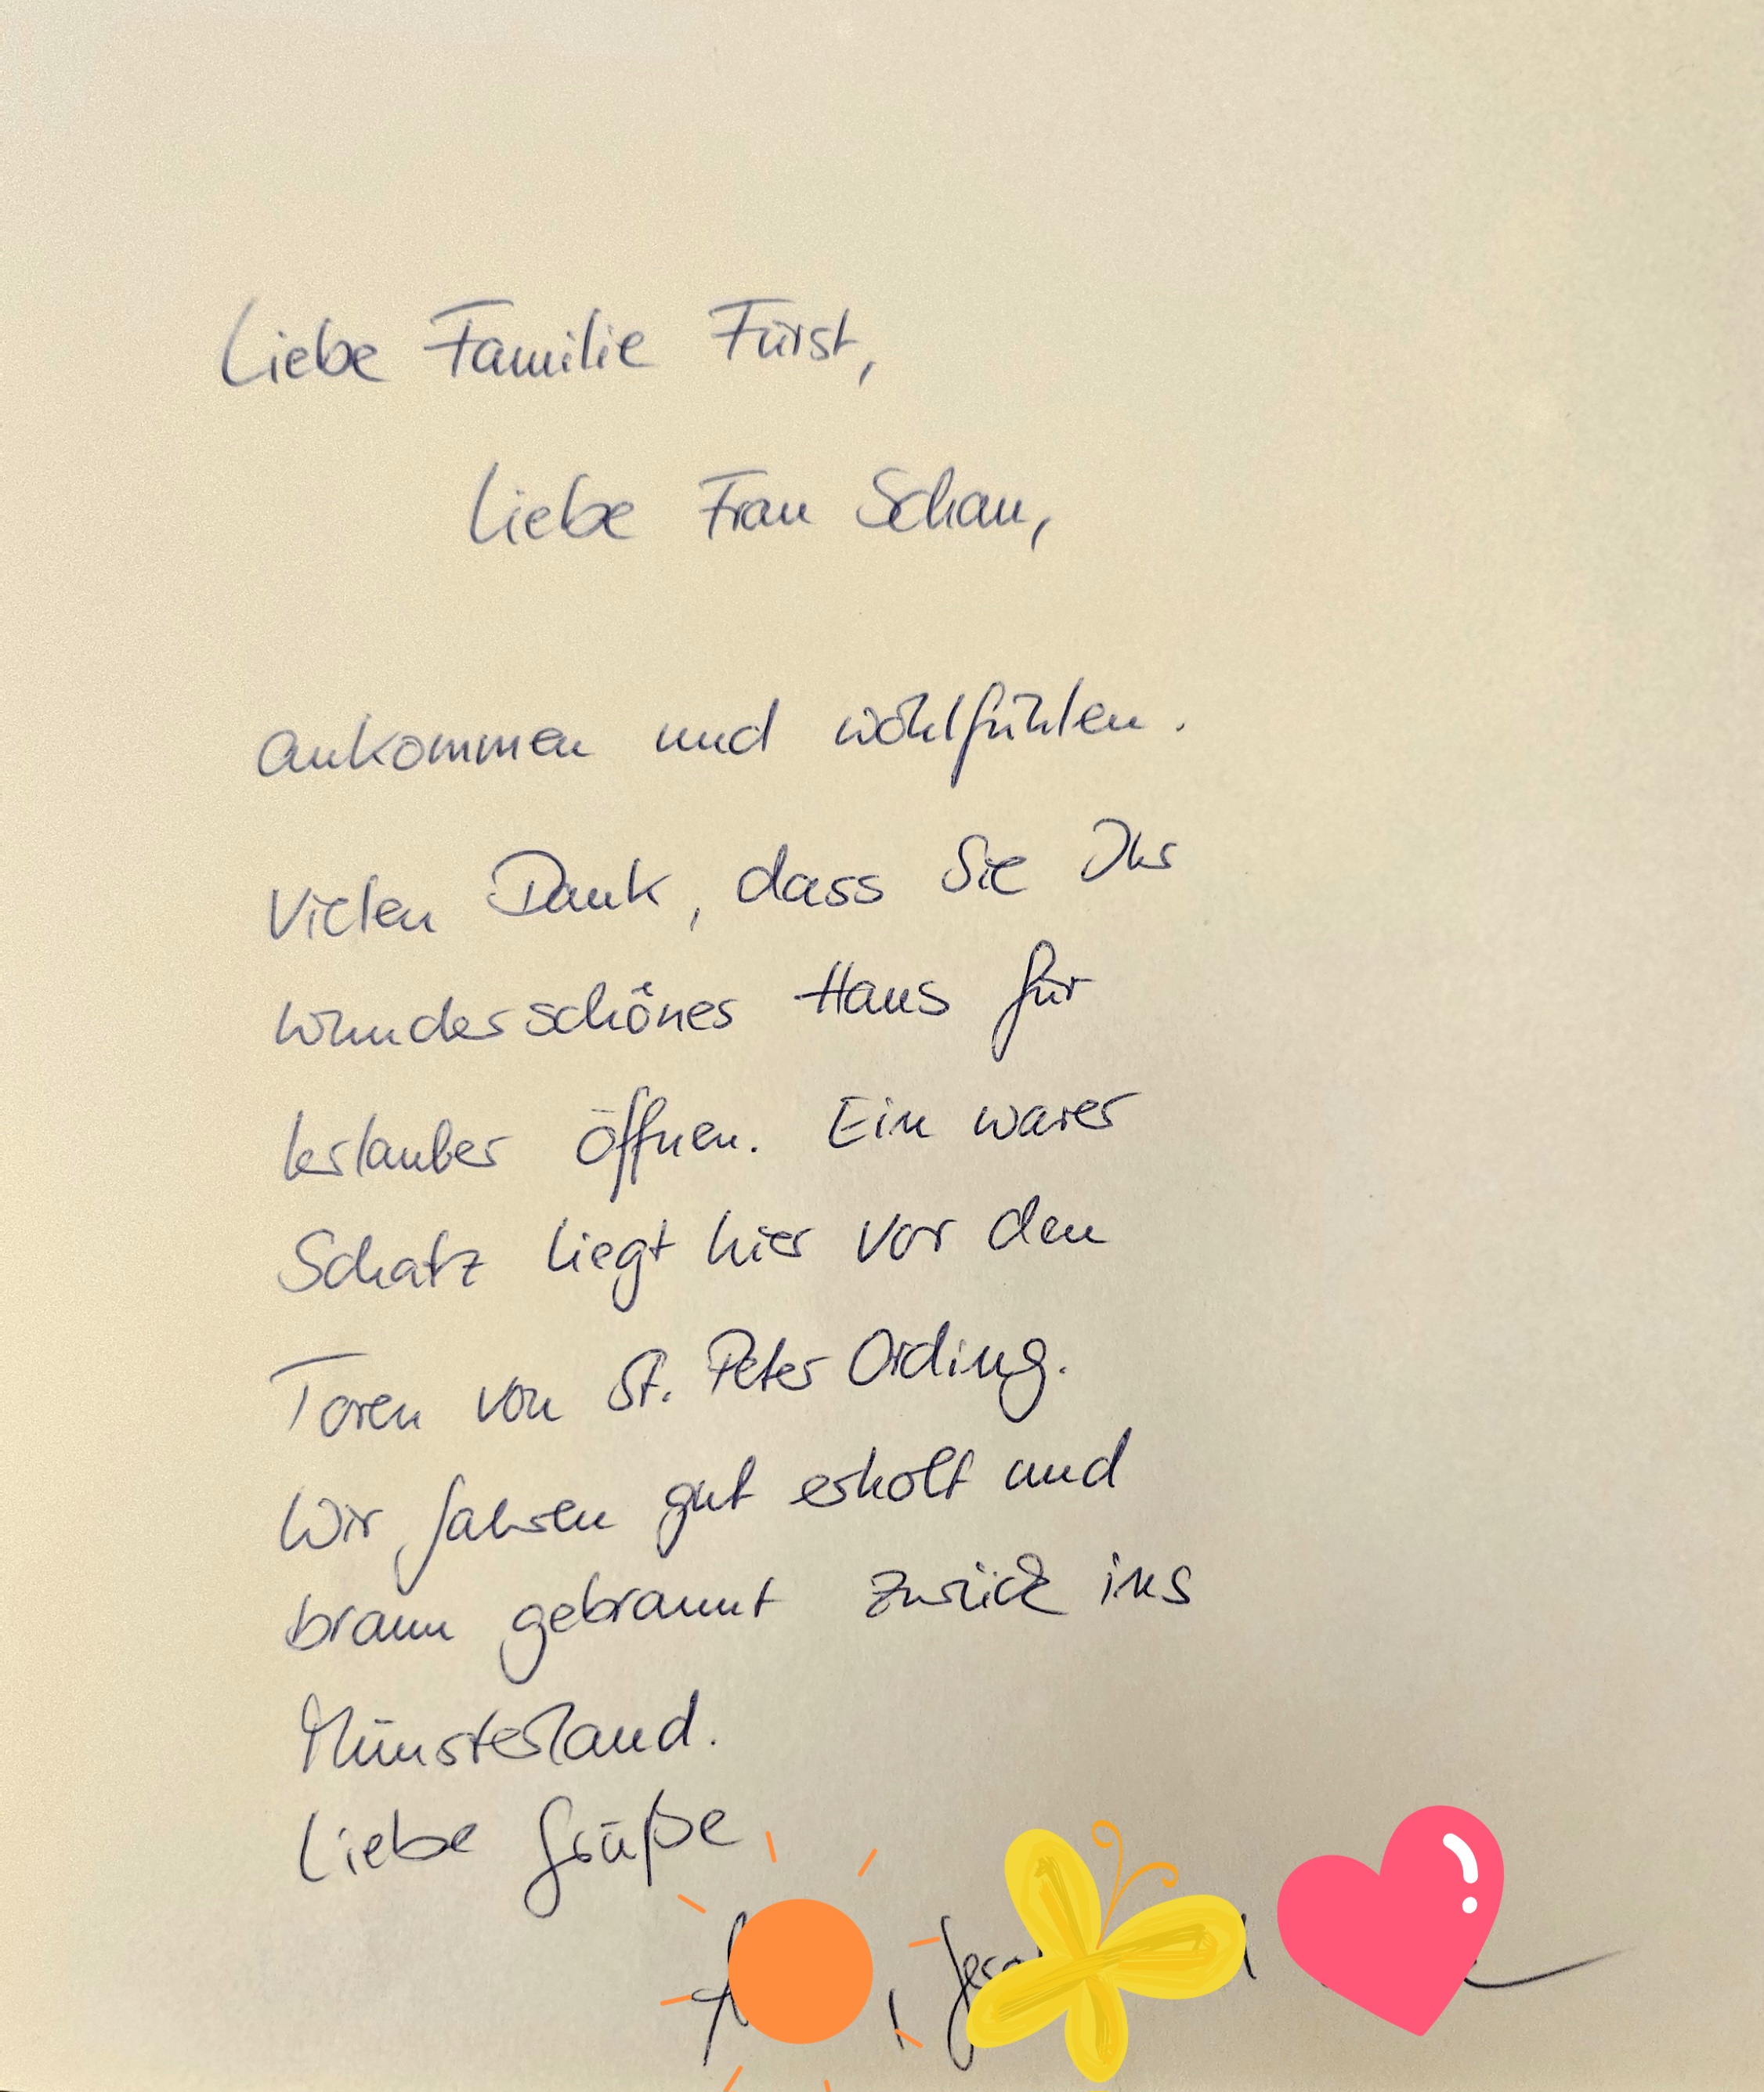 Liebe Familie Fürst,
Liebe Frau Schau,
ankommen und wohlfühlen.
Vielen Dank, dass Sie Ihr
wunderschönes Haus für
Urlauber öffnen. Ein warer
Schatz liegt hier vor den
Toren von St. Peter Ording.
Wir fahren gut erholt und
braun gebrannt zurück ins
Münsterland.
Liebe Grüße